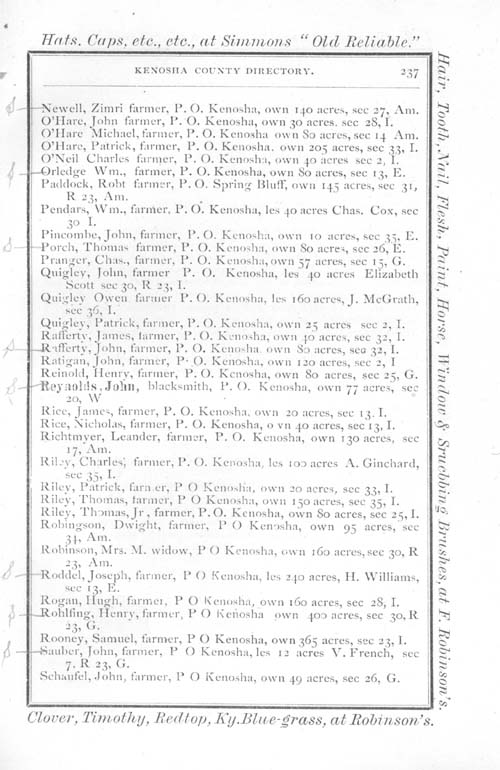 Hats, Caps, etc., etc., at Simmons "Old Reliable."
KENOSHA COUNTY DIRECTORY. 237
Newell, Zimri farmer, P. O. Kenosha, own 140 acres, sec 27, Am.
O'Hare, John farmer, P. O. Kenosha, own 30 acres. sec 28, I.
O'Hare Michael, farmer, P. O. Kenosha own 80 acres, sec 14 Am.
O'Hare, Patrick, farmer, P. O. Kenosha. own 205 acres, sec 33, I.
O'Neil Charles farmer, P. O. Kenosha, own 40 acres sec 2, I.
Orledge Wm., farmer, P. O. Kenosha, own 80 acres, sec 13, E.
Paddock, Robt farmer, P. O. Spring Bluff, own 145 acres, sec 31,
R 23, Am.
Pendars, Wm., farmer, P. O. Kenosha, les 40 acres Chas. Cox, sec
30 I.
Pincombe, John, farmer, P. O. Kenosha, own 10 acres, sec 35, E.
Porch, Thomas farmer, P. O. Kenosha, own 80 acres, sec 26, E.
Pranger, Chas., farmer, P. O. Kenosha, own 57 acres, sec 15, G.
Quigley, John, farmer P. O. Kenosha, les 40 acres Elizabeth
Scott sec 30, R 23, I.
Quigley Owen farmer P. O. Kenosha, les 160 acres, J. McGrath,
sec 36, I.
Quigley, Patrick, farmer, P. O. Kenosha, own 25 acres sec 2, I.
Rafferty, James, farmer, P. O. Kenosha, own 40 acres, sec 32, I.
Rafferty, John, farmer, P. O. Kenosha. own 80 acres, sea 32, I.
Ratigan, John, farmer, P. O. Kenosha, own 120 acres, sec 2, I
Reinold, Henry, farmer, P. O. Kenosha, own 80 acres, sec 25, G.
Reynolds, John, blacksmith, P. O. Kenosha, own 77 acres, sec
20, W
Rice, James, farmer, P. O. Kenosha, own 20 acres, sec 13. I.
Rice, Nicholas, farmer, P. O. Kenosha, o vn 40 acres, sec 13, I.
Richtmyer, Leander, farmer, P. O. Kenosha, own 130 acres, sec
17, Am.
Riley, Charles, farmer, P. O. Kenosha, les 100 acres A. Ginchard,
sec 35, I.
Riley, Patrick, farmer, P O Kenosha, own 20 acres, sec 33, I.
Riley, Thomas, farmer, P O Kenosha, own 150 acres, sec 35, I.
Riley, Thomas, Jr, farmer, P. O. Kenosha, own 80 acres, sec 25, I.
Robingson, Dwight, farmer, P O Kenosha, own 95 acres, sec
34, Am.
Robinson, Mrs. M. widow, P O Kenosha, own 160 acres, sec 30, R
23, Am.
Roddel, Joseph, farmer, P O Kenosha, les 240 acres, H. Williams,
sec 13, E.
Rogan, Hugh, farmer, P O Kenosha, own 160 acres, sec 28, I.
Rohlfing, Henry, farmer, P O Kenosha own 400 acres, sec 30, R
23, G.
Rooney, Samuel, farmer, P O Kenosha, own 365 acres, sec 23, I.
Sauber, John, farmer, P O Kenosha, les 12 acres V. French, sec
7, R 23, G.
Schanfel, John, farmer, P O Kenosha, own 49 acres, sec 26, G.
Clover, Timothy, Redtop, Ky. Blue-grass, at Robinson's.
Hair, Tooth, Nail, Flesh, Paint, Horse, Window & Srucbbing Brushes, at F. Robinson's.